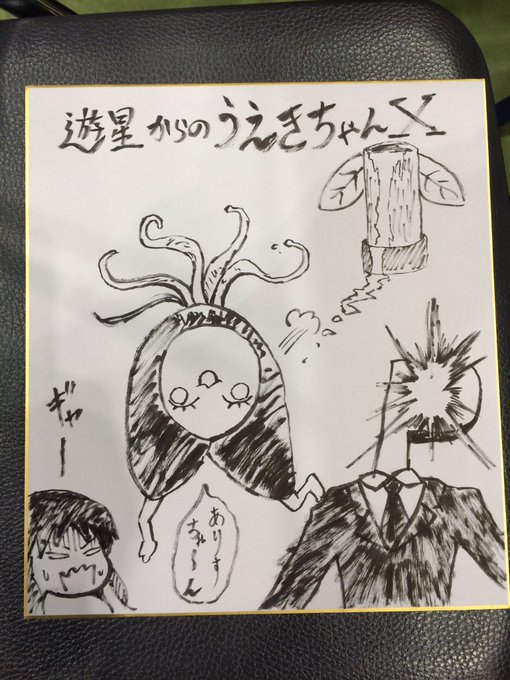 遊星からのうえきちゃんX
ギャー
ありす
ぢゃ〜ん